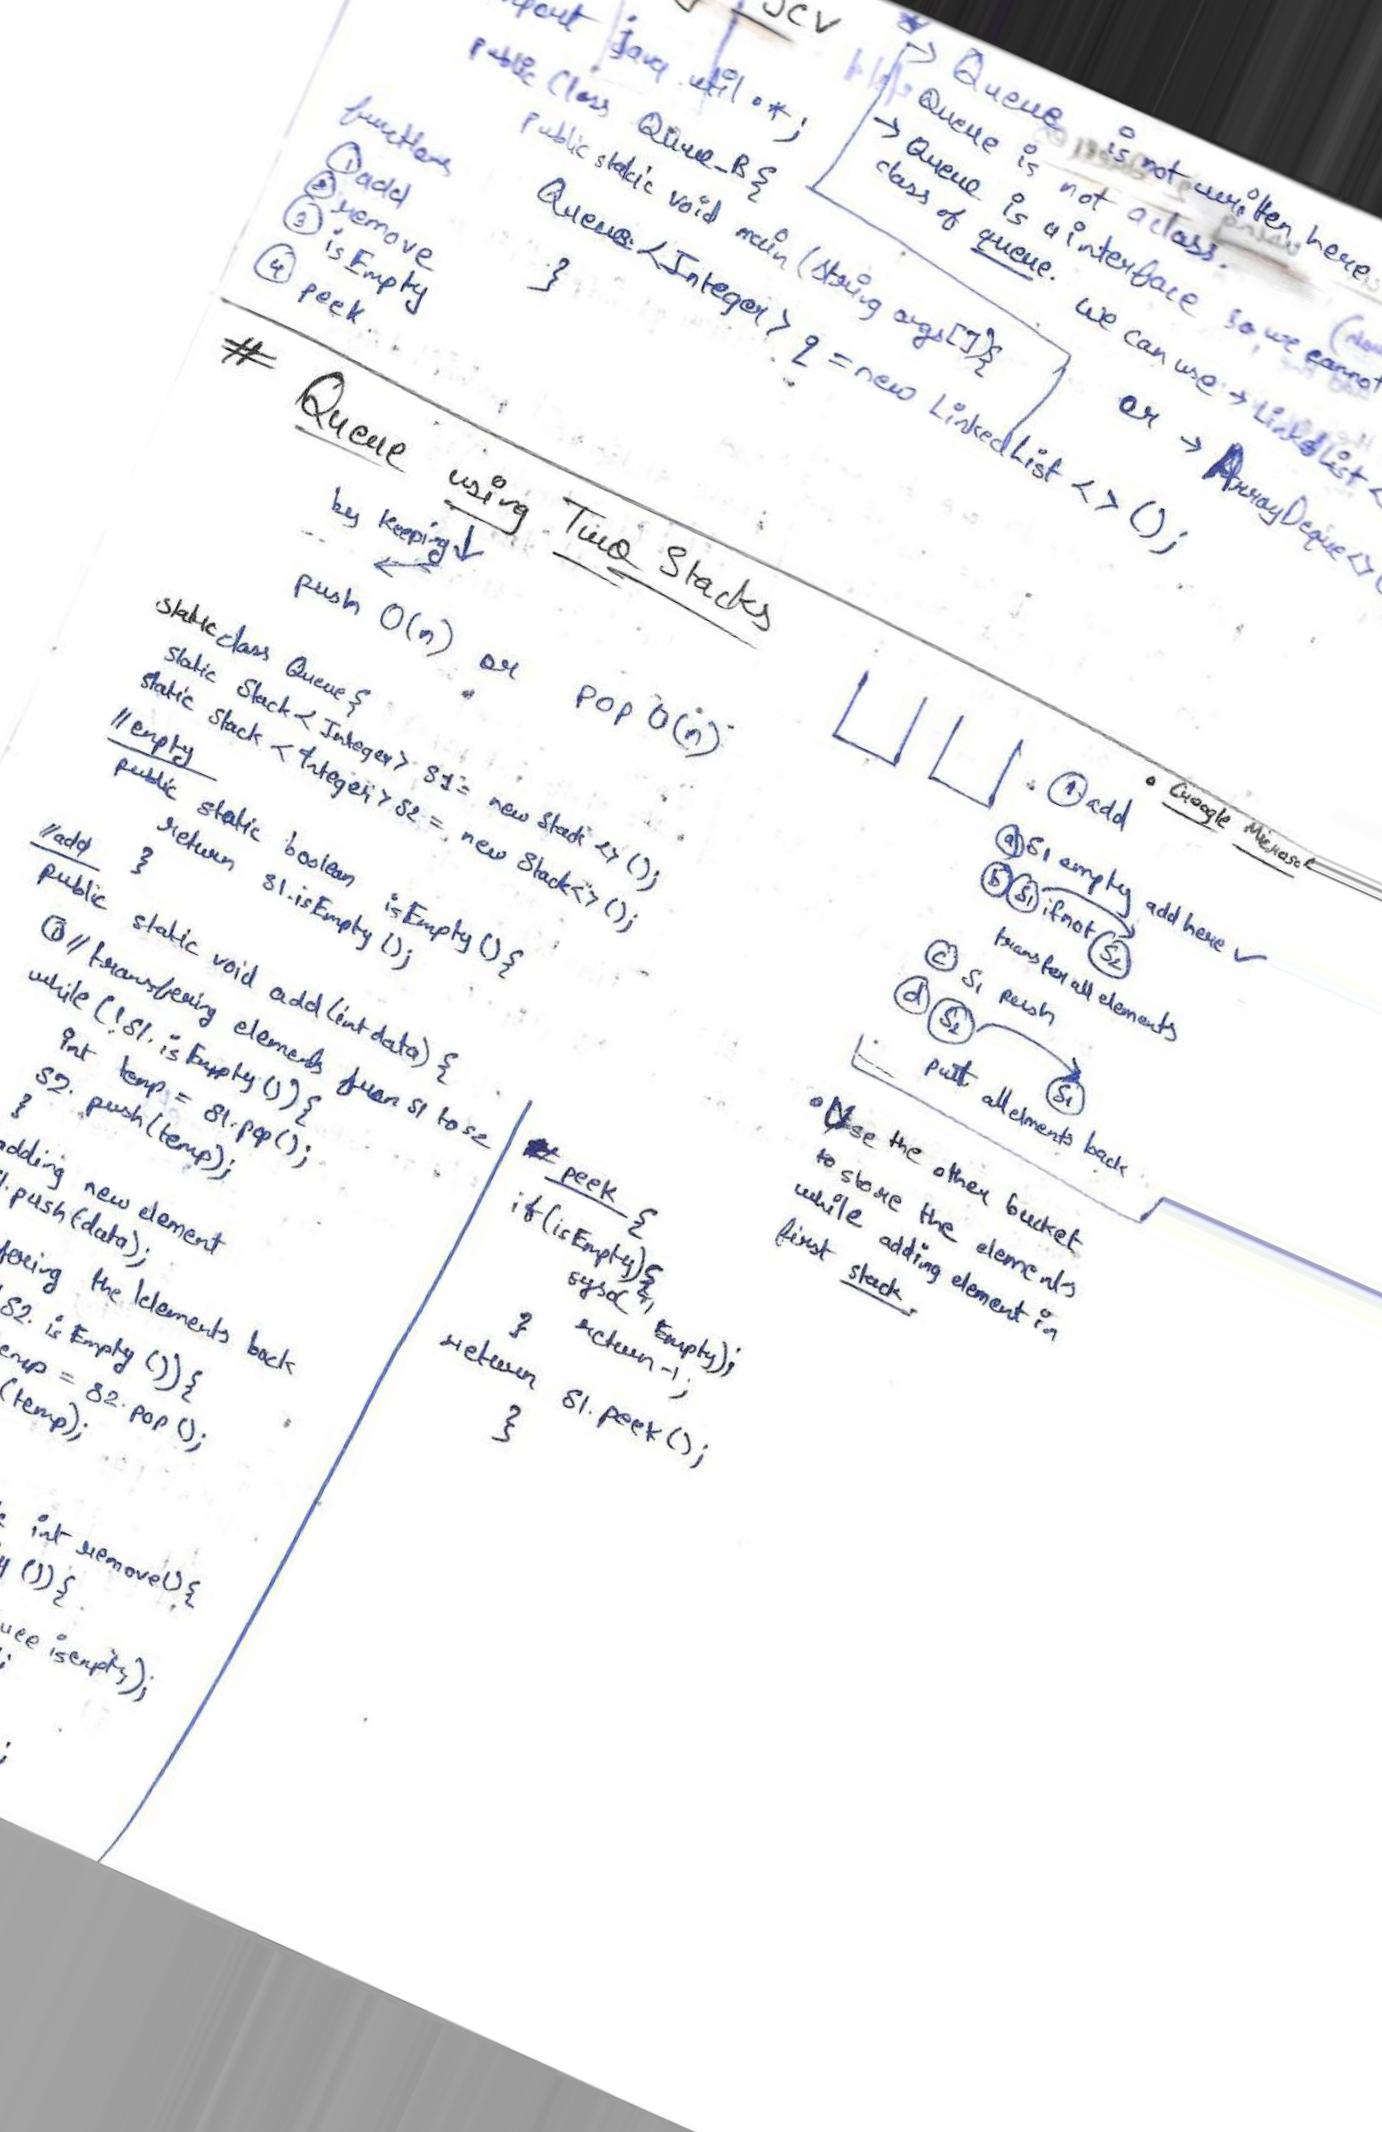 JCV
import java.util.*;
public class Queue_B{
public static void main (String args[]){
Queue <Integer> q = new LinkedList <> ();
}
functions
① add
② remove
③ isEmpty
④ peek.
→ Queue is not written here
Queue is not a class.
→ Queue is a interface so, we cannot
class of queue. we can use → LinkedList <
or → ArrayDeque<>(
# Queue using Two Stacks
• Google Microsof
by keeping ↓
←
push O(n) or pop O(n)
static class Queue{
static Stack < Integer> S1 = new Stack <> ();
static Stack < Integer> S2 = new Stack<> ();
//empty
public static boolean isEmpty () {
return S1.isEmpty ();
}
//add
public static void add (int data) {
① //transfering elements from S1 to S2
while (!S1.isEmpty ()) {
int temp = S1.pop();
S2. push(temp);
}
adding new element
.push(data);
fering the lelements back
S2. isEmpty ()) {
emp = S2. pop ();
(temp);
int remove() {
()) {
isempty);
;
;
# peek {
if (isEmpty) {
syso(" Empty);
return -1;
}
return S1. peek ();
}
① add
ⓐ S1 empty add here ✓
ⓑ S1 if not S2
transfer all elements
ⓒ S1 push
ⓓ S2 S1
put all elments back
• Use the other bucket
to store the elements
while adding element in
first stack.